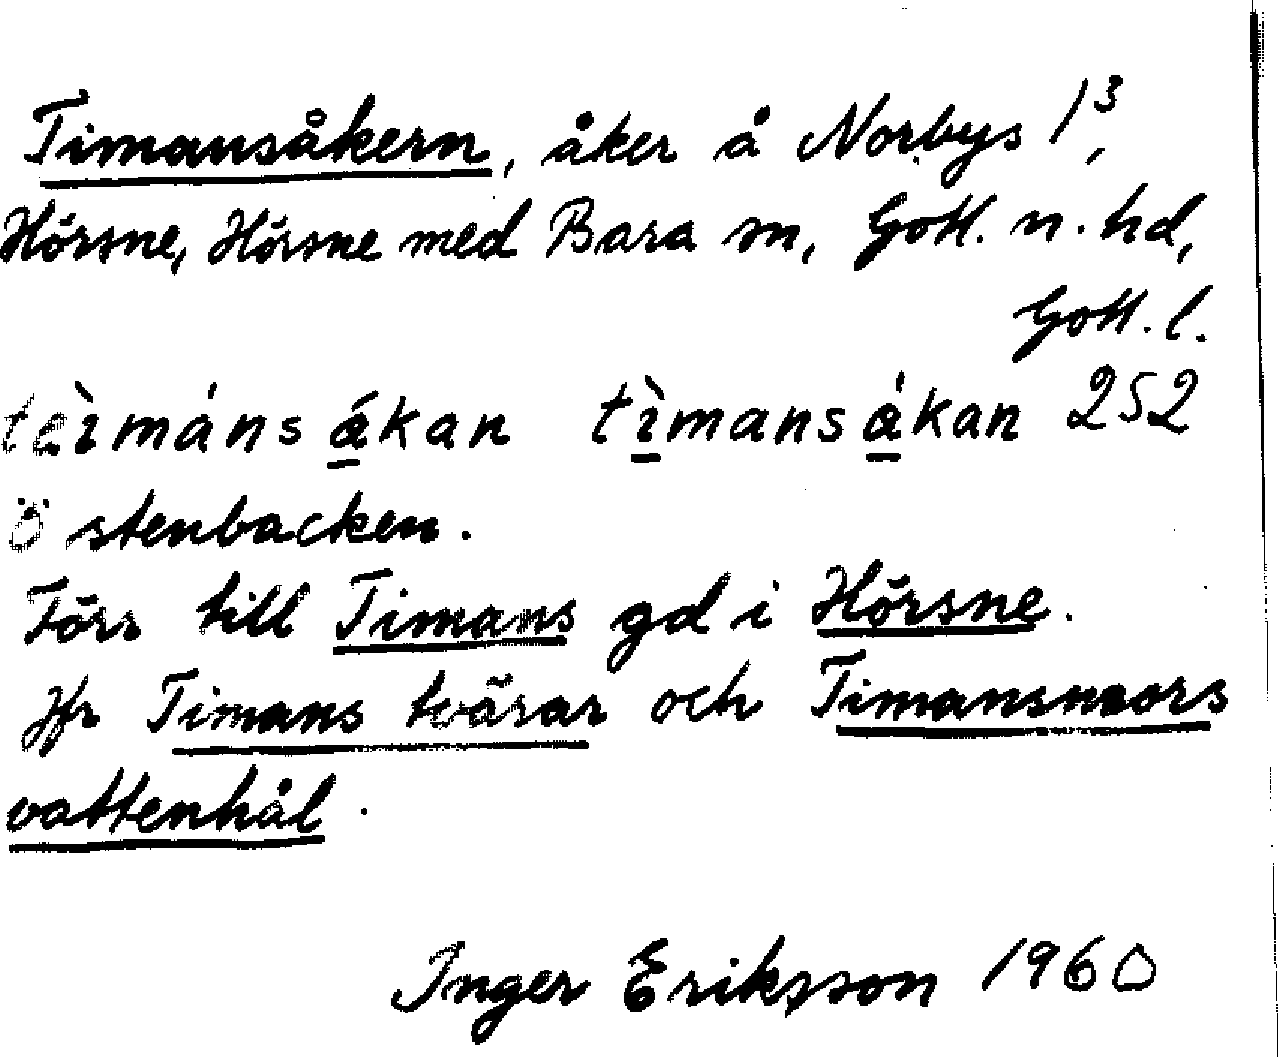 Timansåkern, åker å Norbys 1³,
Hörsne, Hörsne med Bara sn, Gotl. n. hd,
Gotl. l.
teìmáns ákan tìmansákan 252
Ö stenbacken.
Förr till Timans gd i Hörsne.
Jfr Timans tvärar och Timansmors
vattenhål.
Inger Eriksson 1960